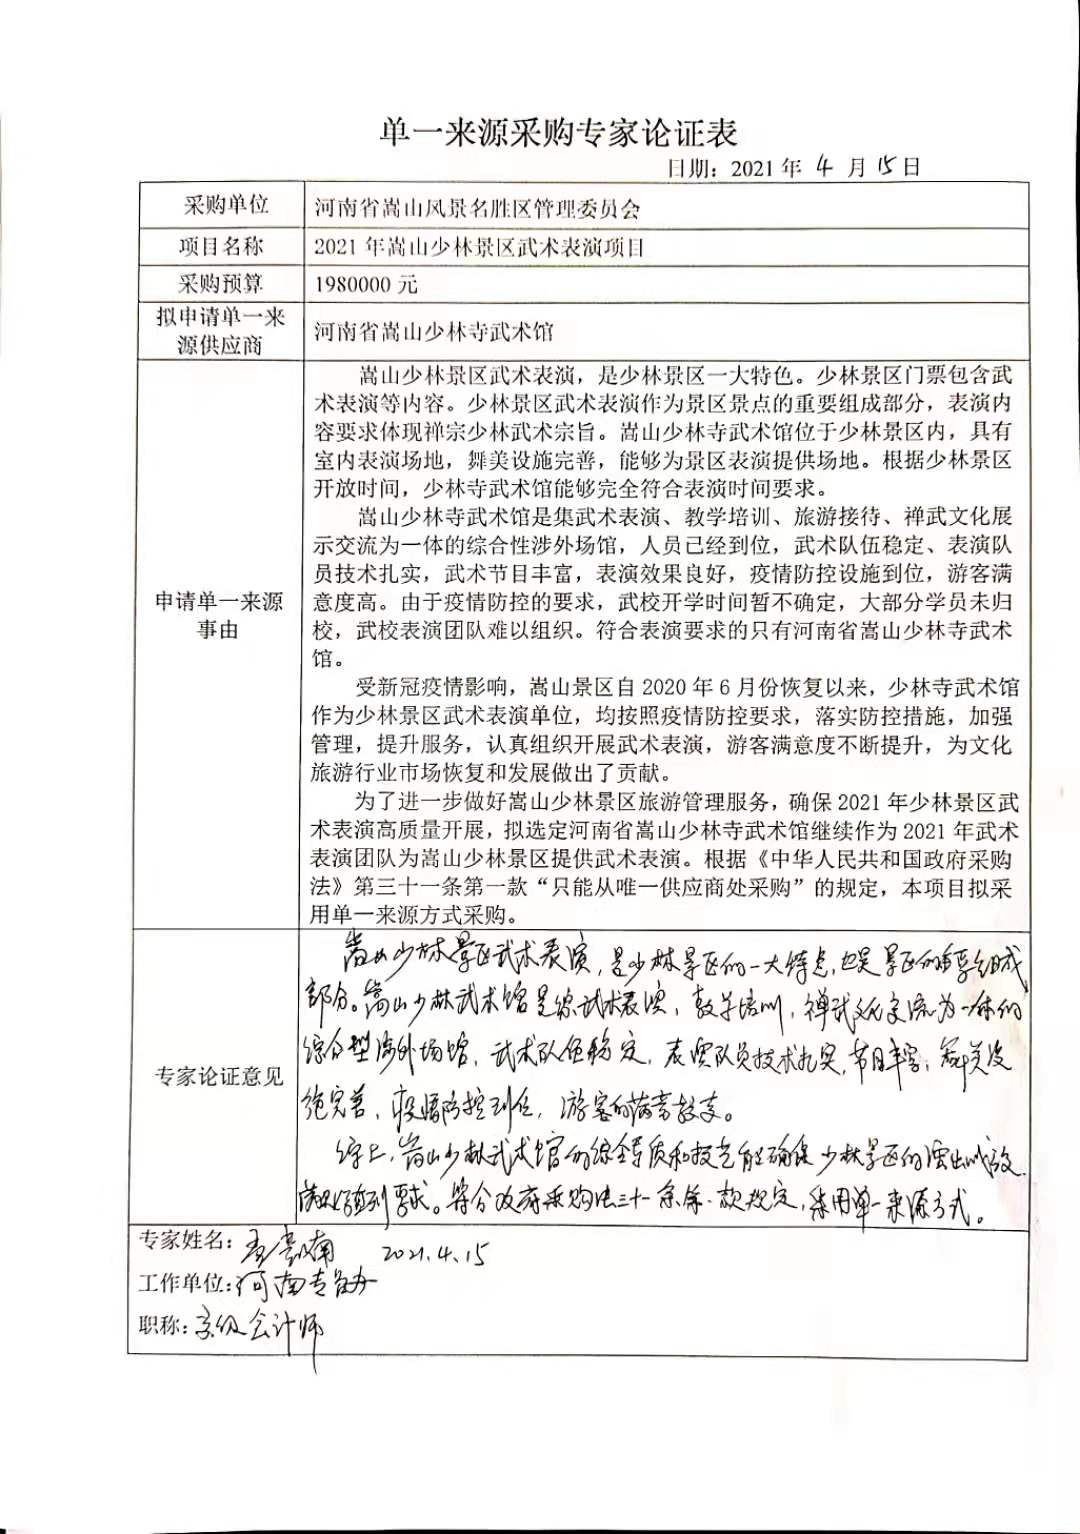 单一来源采购专家论证表
日期：2021年4月15日
采购单位 河南省嵩山风景名胜区管理委员会
项目名称 2021年嵩山少林景区武术表演项目
采购预算 1980000元
拟申请单一来
源供应商
河南省嵩山少林寺武术馆
申请单一来源
事由
嵩山少林景区武术表演，是少林景区一大特色。少林景区门票包含武
术表演等内容。少林景区武术表演作为景区景点的重要组成部分，表演内
容要求体现禅宗少林武术宗旨。嵩山少林寺武术馆位于少林景区内，具有
室内表演场地，舞美设施完善，能够为景区表演提供场地。根据少林景区
开放时间，少林寺武术馆能够完全符合表演时间要求。
嵩山少林寺武术馆是集武术表演、教学培训、旅游接待、禅武文化展
示交流为一体的综合性涉外场馆，人员已经到位，武术队伍稳定、表演队
员技术扎实，武术节目丰富，表演效果良好，疫情防控设施到位，游客满
意度高。由于疫情防控的要求，武校开学时间暂不确定，大部分学员未归
校，武校表演团队难以组织。符合表演要求的只有河南省嵩山少林寺武术
馆。
受新冠疫情影响，嵩山景区自2020年6月份恢复以来，少林寺武术馆
作为少林景区武术表演单位，均按照疫情防控要求，落实防控措施，加强
管理，提升服务，认真组织开展武术表演，游客满意度不断提升，为文化
旅游行业市场恢复和发展做出了贡献。
为了进一步做好嵩山少林景区旅游管理服务，确保2021年少林景区武
术表演高质量开展，拟选定河南省嵩山少林寺武术馆继续作为2021年武术
表演团队为嵩山少林景区提供武术表演。根据《中华人民共和国政府采购
法》第三十一条第一款“只能从唯一供应商处采购”的规定，本项目拟采
用单一来源方式采购。
专家论证意见
嵩山少林景区武术表演，是少林景区的一大特点，也是景区的重要组成
部分。嵩山少林武术馆是武术表演，教学培训，禅武文化交流为一体的
综合型涉外场馆，武术队伍稳定，表演队员技术扎实，节目丰富，舞美设
施完善，疫情防控到位，游客的满意较高。
综上，嵩山少林武术馆的综合素质和技艺能确保少林景区的演出
要求。符合政府采购法三十一条第一款规定，采用单一来源方式。
专家姓名： 2021.4.15
工作单位：河南专员办
职称：高级会计师